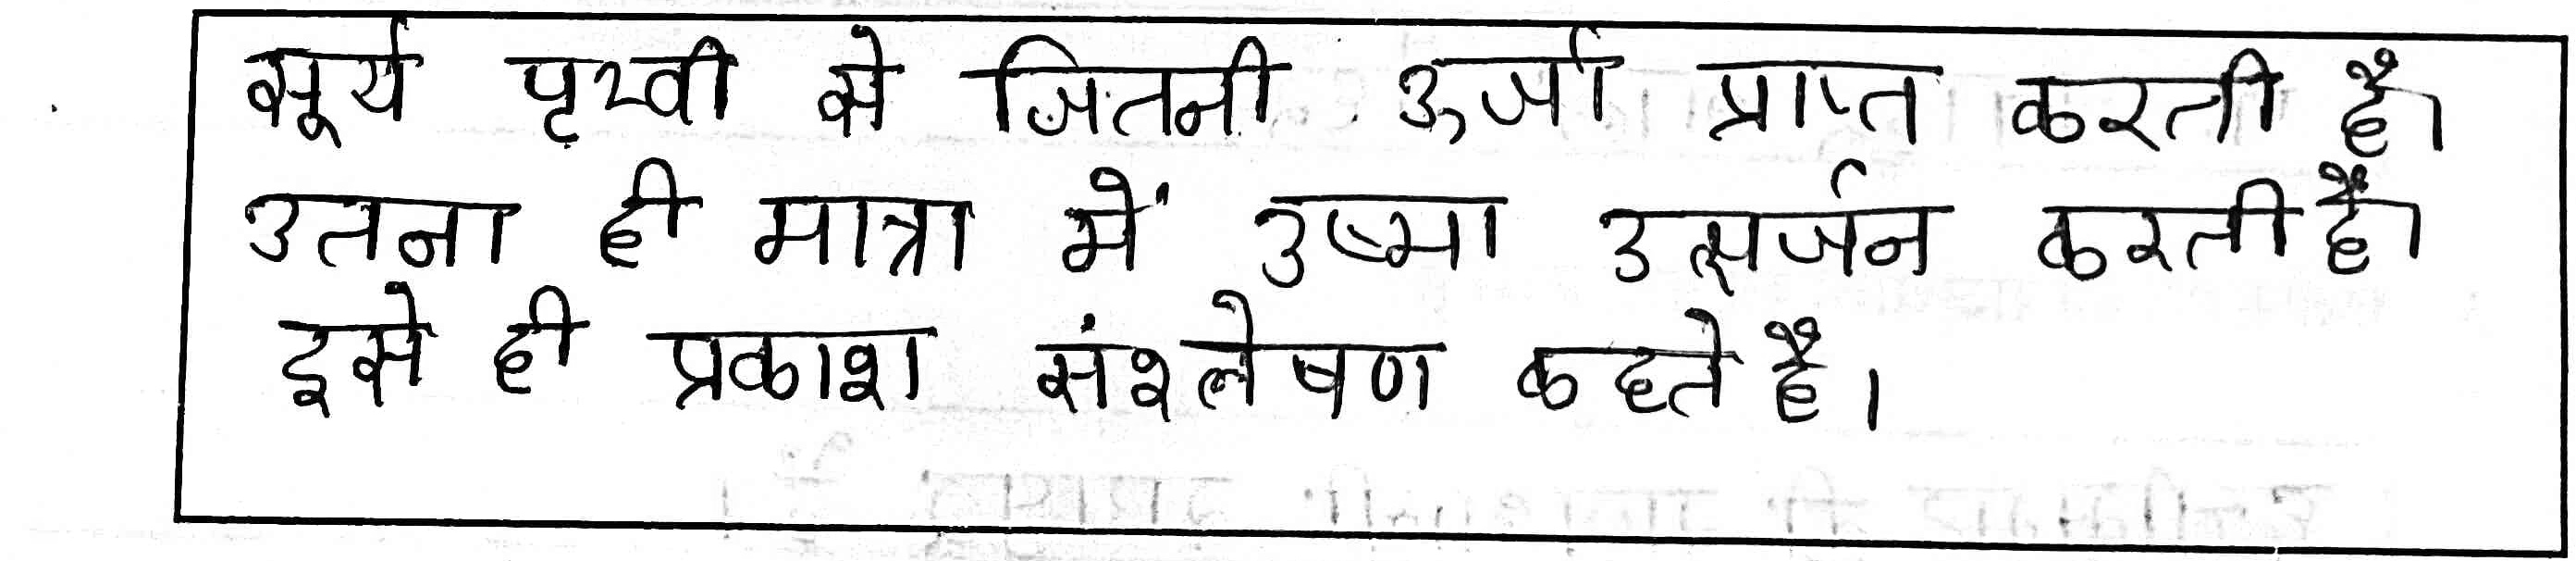 सूर्य पृथ्वी से जितनी ऊर्जा प्राप्त करती है।
उतना ही मात्रा में उष्मा उत्सर्जन करती है।
इसे ही प्रकाश संश्लेषण कहते है।